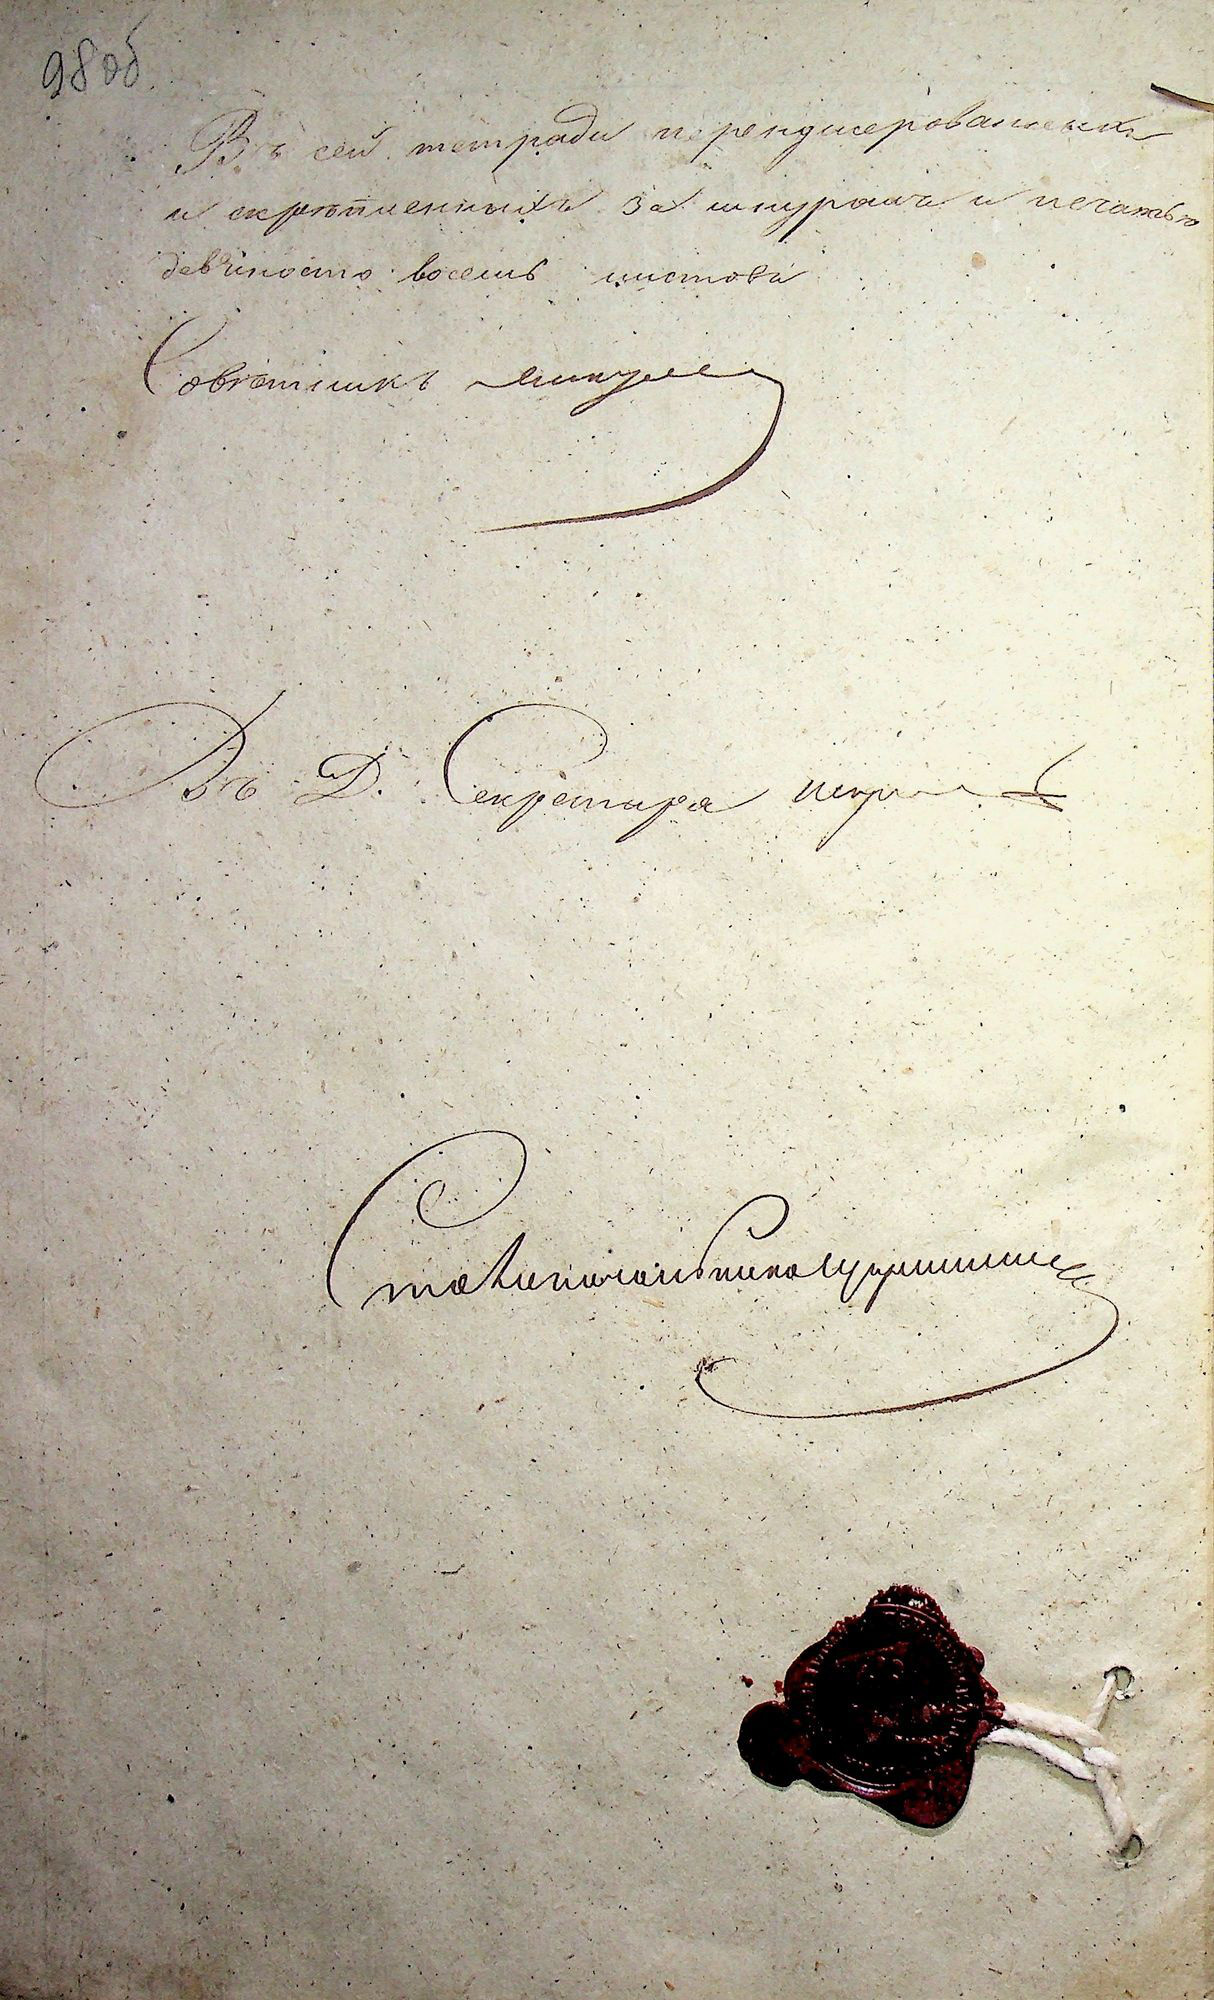 98 об
Въ сей тетради перенумерованныхъ
и скрѣпленныхъ за шнуромъ и печатью
девяносто восемь листовъ
Совѣтникъ
Въ Д. Секретаря